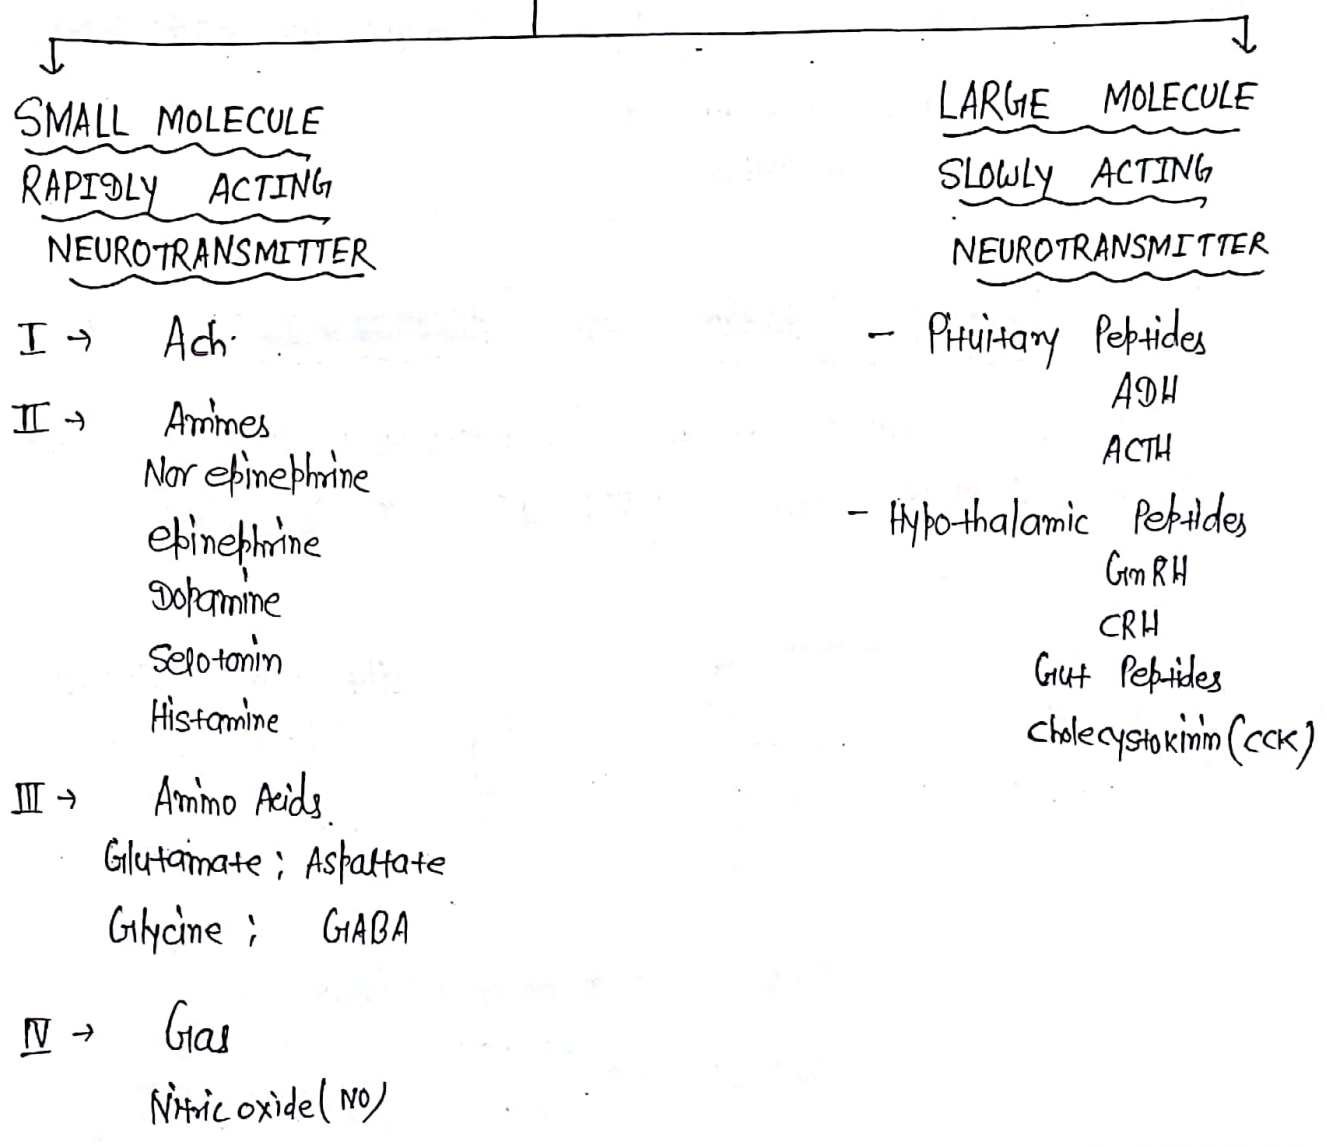 SMALL MOLECULE
RAPIDLY ACTING
NEUROTRANSMITTER
I → Ach.
II → Amines
Nor epinephrine
epinephrine
Dopamine
Serotonin
Histamine
III → Amino Acids.
Glutamate ; Aspartate
Glycine ; GABA
IV → Gas
Nitric oxide (NO)
LARGE MOLECULE
SLOWLY ACTING
NEUROTRANSMITTER
- Pituitary Peptides
ADH
ACTH
- Hypothalamic Peptides
GnRH
CRH
Gut Peptides
cholecystokinin (CCK)